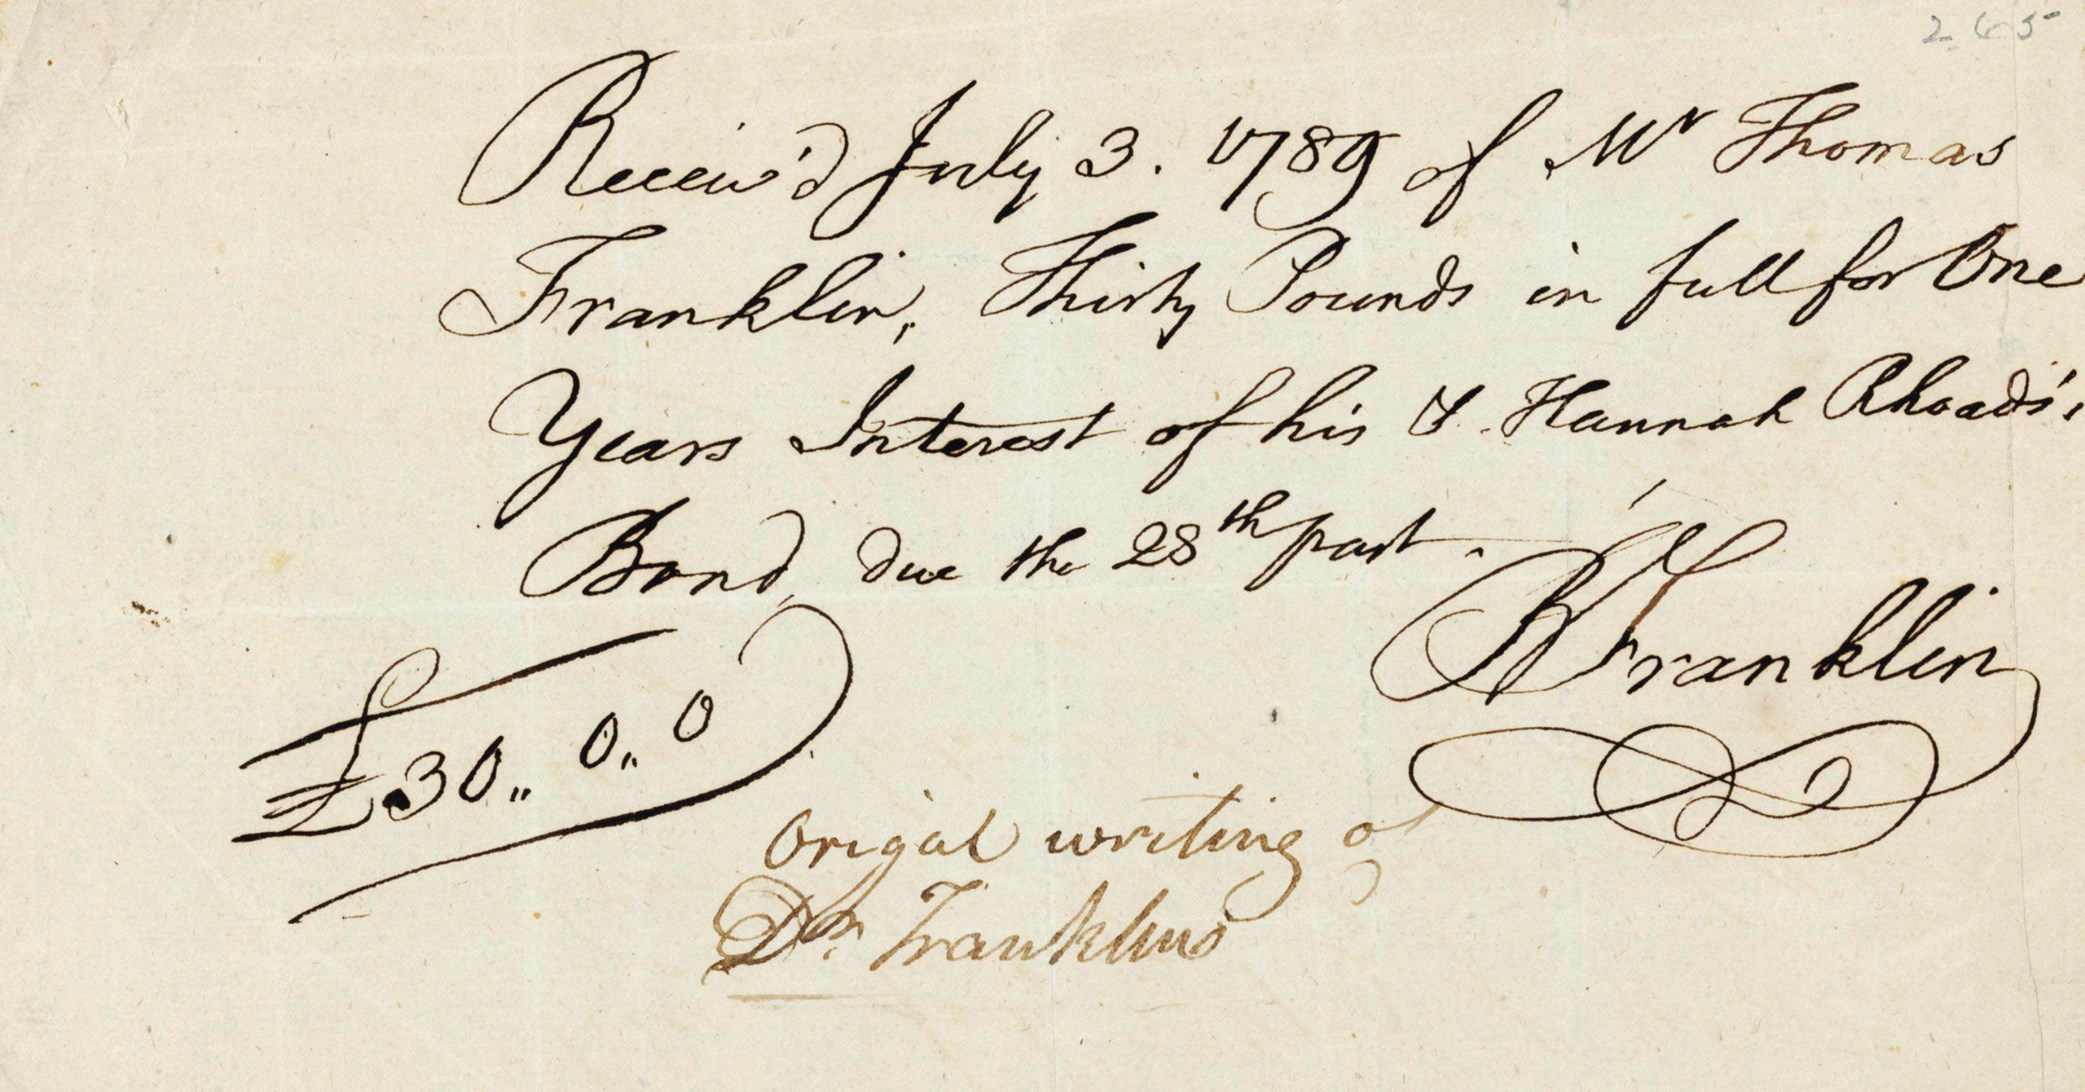 265
Receiv'd July 3. 1789 of Mr Thomas
Franklin, Thirty Pounds in full for One
Years Interest of his & Hannah Rhoads's
Bond, due the 28th past.
B Franklin
£30,, 0,, 0
Origal writing of
Dr. Franklins